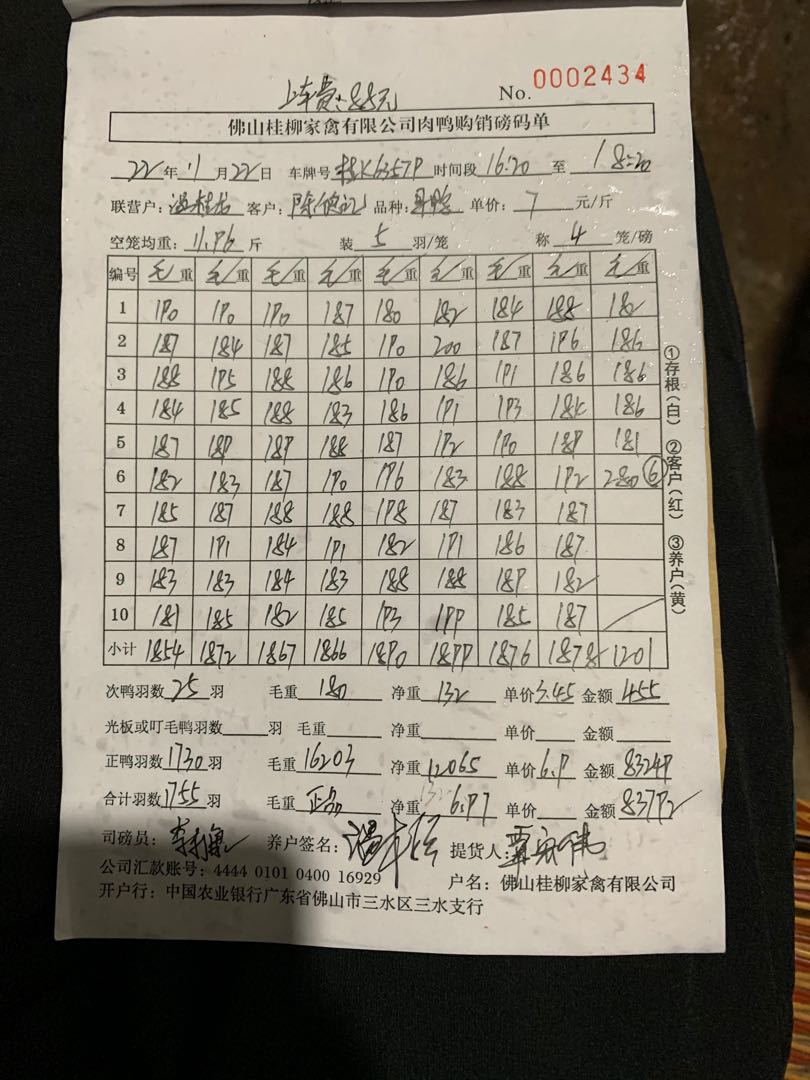 上车费:88元
No. 0002434
佛山桂柳家禽有限公司肉鸭购销磅码单
22年11月22日 车牌号桂K63579 时间段16:20至18:20
联营户: 客户:陈德记 品种: 单价:7元/斤
空笼均重:11.96斤 装5羽/笼 称4笼/磅
编号 毛/重 毛/重 毛/重 毛/重 毛/重 毛/重 毛/重 毛/重 毛/重
1 190 190 190 187 180 182 184 188 182
2 187 184 187 185 190 200 187 196 186
3 188 195 188 186 190 186 191 186 186
4 184 185 188 183 186 191 193 184 186
5 187 189 189 188 187 192 190 189 181
6 182 183 187 190 196 183 188 192 280⑥
7 185 187 188 188 198 187 183 187
8 187 191 184 191 182 191 186 187
9 183 183 184 183 188 188 189 182
10 181 185 182 185 193 199 185 187
小计 1854 1872 1867 1866 1890 1899 1876 1878 1201
次鸭羽数25羽 毛重180 净重132 单价3.45 金额455
光板或叮毛鸭羽数羽 毛重 净重 单价 金额
正鸭羽数1730羽 毛重16203 净重12065 单价6.9 金额83249
合计羽数1755羽 毛重正品 净重6.97 单价 金额83792
司磅员: 养户签名: 提货人:覃宏伟
公司汇款账号:4444 0101 0400 16929 户名:佛山桂柳家禽有限公司
开户行:中国农业银行广东省佛山市三水区三水支行
①存根(白) ②客户(红) ③养户(黄)